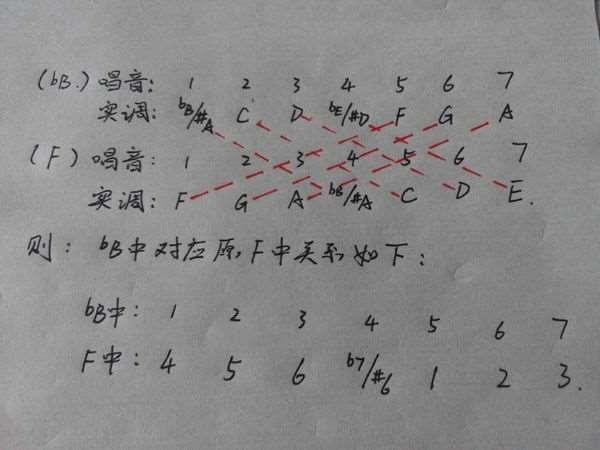 (bB.) 唱音: 1 2 3 4 5 6 7
实调: bB/#A C D bE/#D F G A
(F) 唱音: 1 2 3 4 5 6 7
实调: F G A bB/#A C D E.
则: bB中对应原F中关系如下:
bB中: 1 2 3 4 5 6 7
F中: 4 5 6 b7/#6 1 2 3.